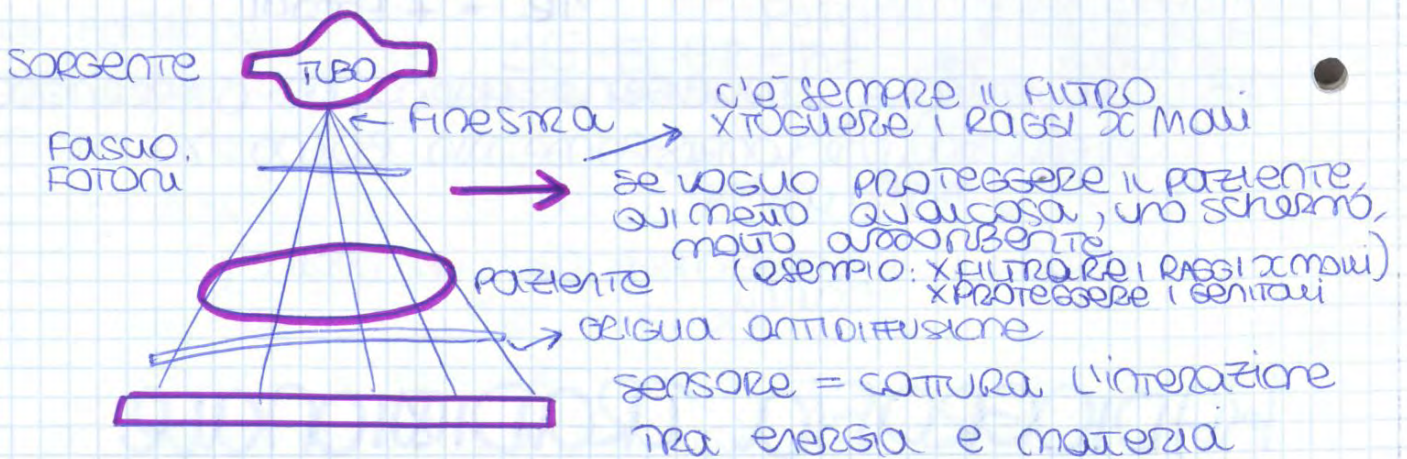 SORGENTE
TUBO
FINESTRA
FASCIO.
FOTONI
c'è sempre il FILTRO
X TOGLIERE I RAGGI X MOLLI
se VOGLIO PROTEGGERE il paziente,
qui metto qualcosa, uno schermo,
molto assorbente
(esempio: X FILTRARE I RAGGI X MOLLI)
X PROTEGGERE I GENITALI
paziente
GRIGLIA ANTIDIFFUSIONE
sensore = CATTURA L'interazione
TRA energia e materia